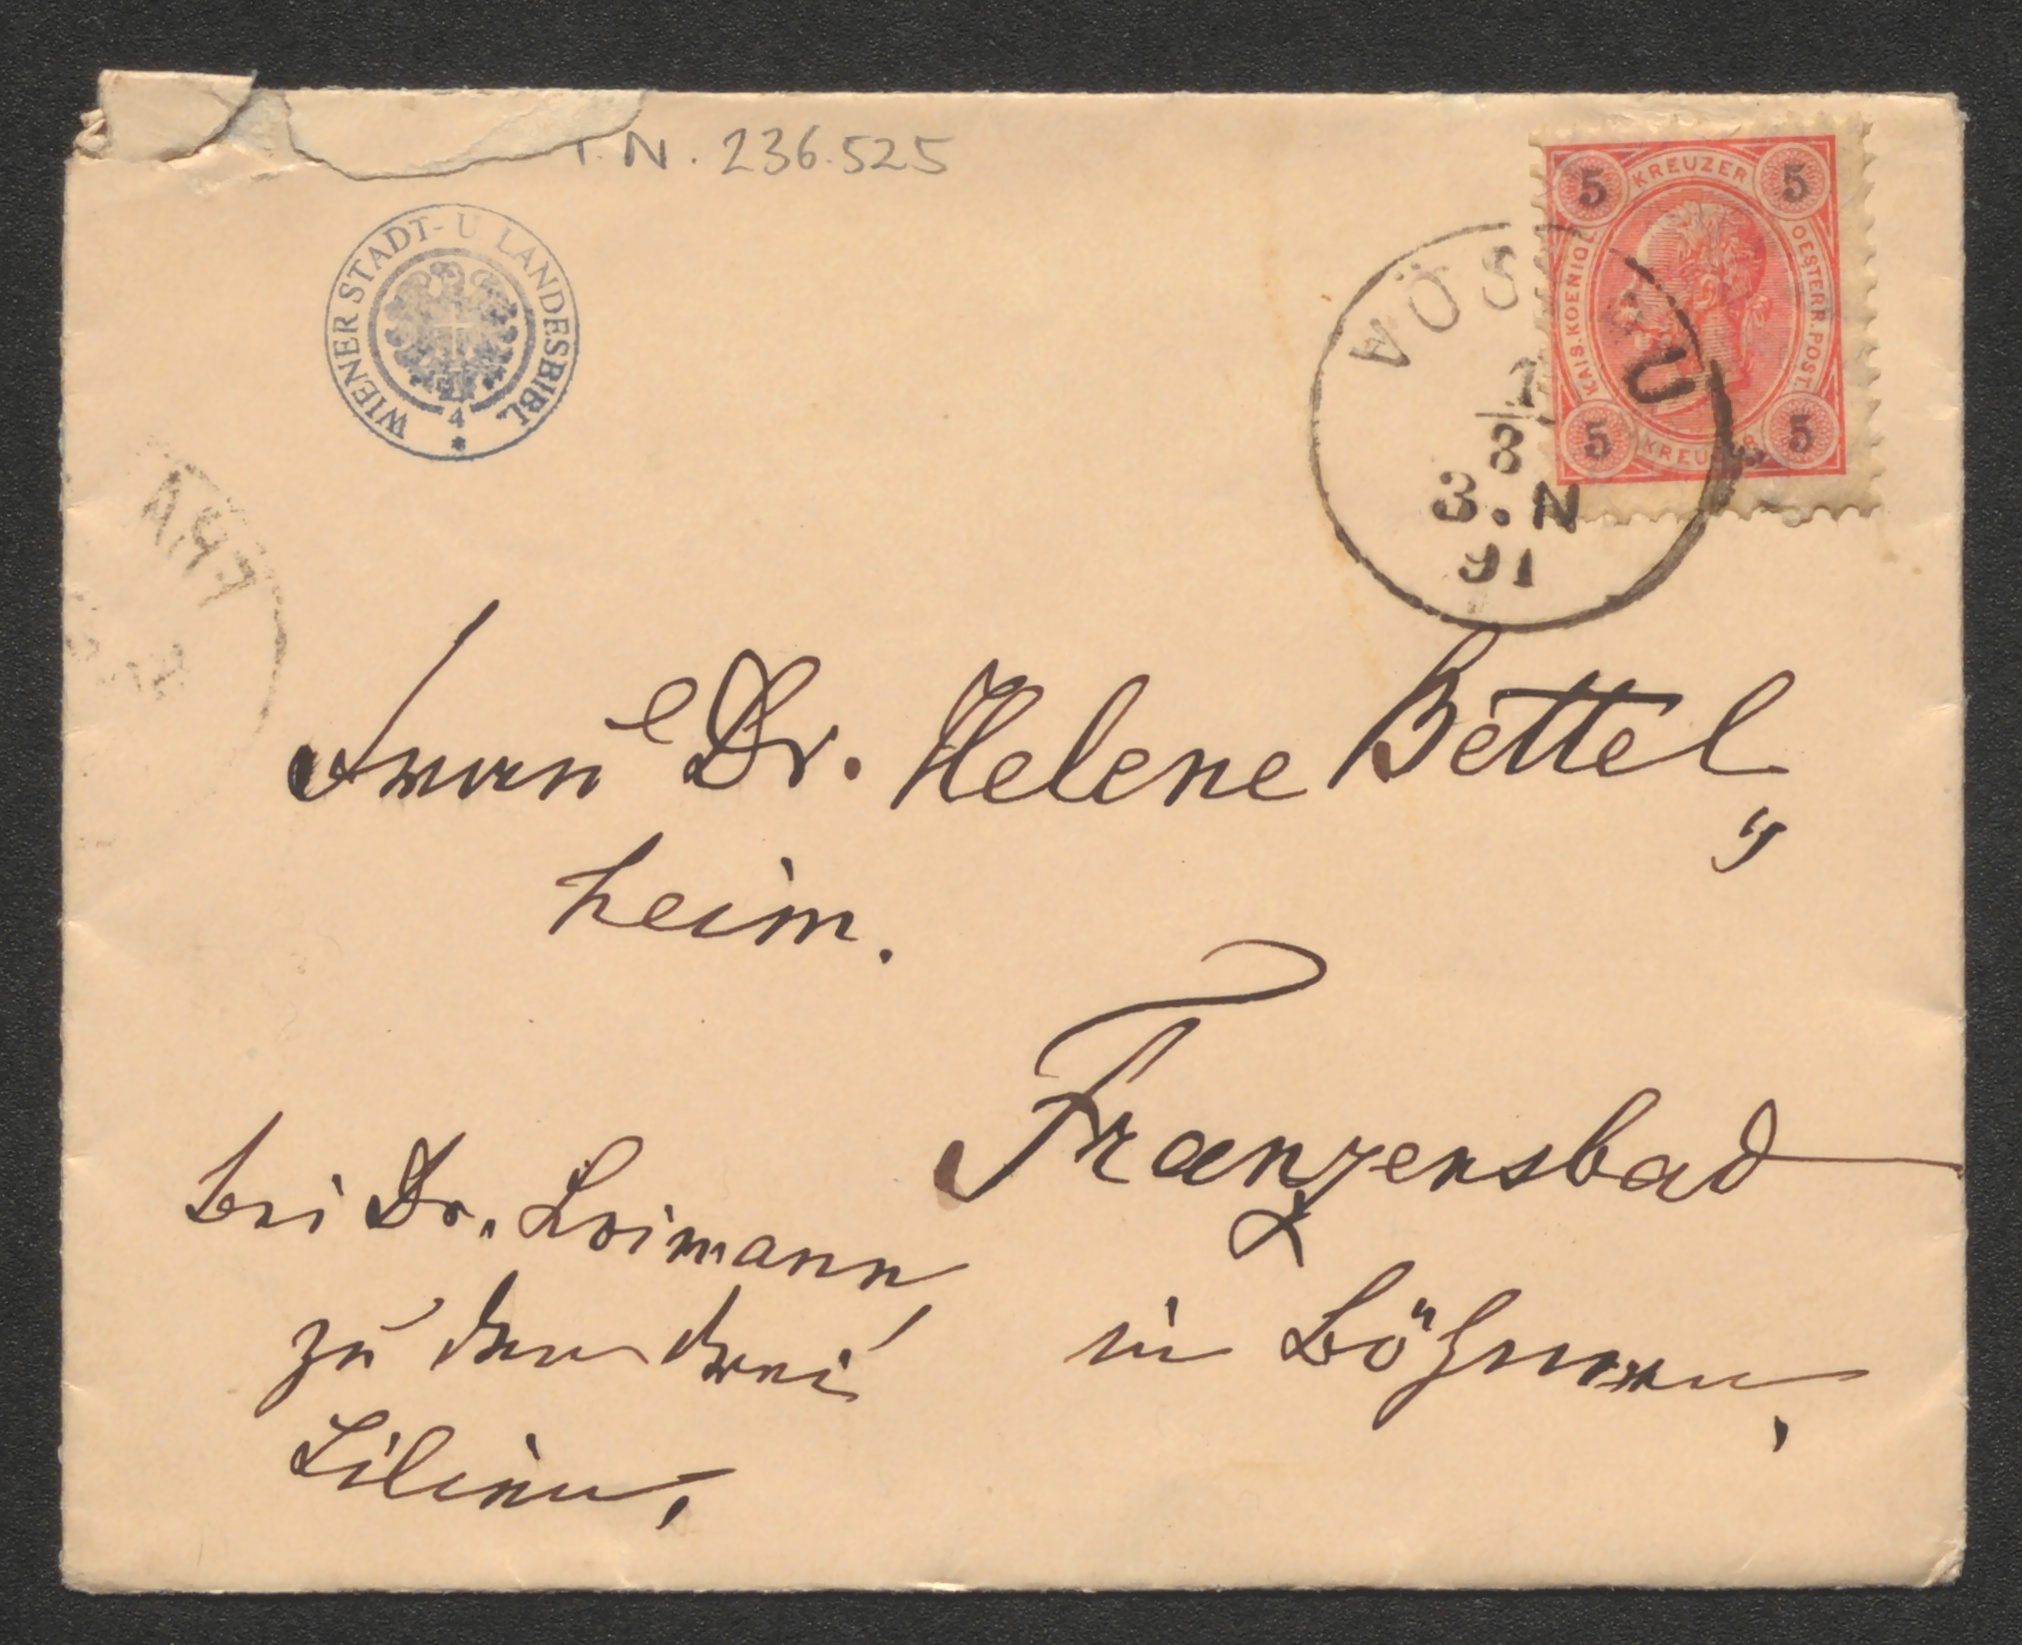 I. N. 236.525
WIENER STADT- U LANDESBIBL.
4
*
5 KREUZER 5
KAIS. KOENIGL. OESTERR. POST.
5 5
VÖS AU
1
8
3. N
91
Frau Dr. Helene Bettel„
heim.
Franzensbad
in Böhmen,
bei Dr. Loimann
zu den drei
Lilien,